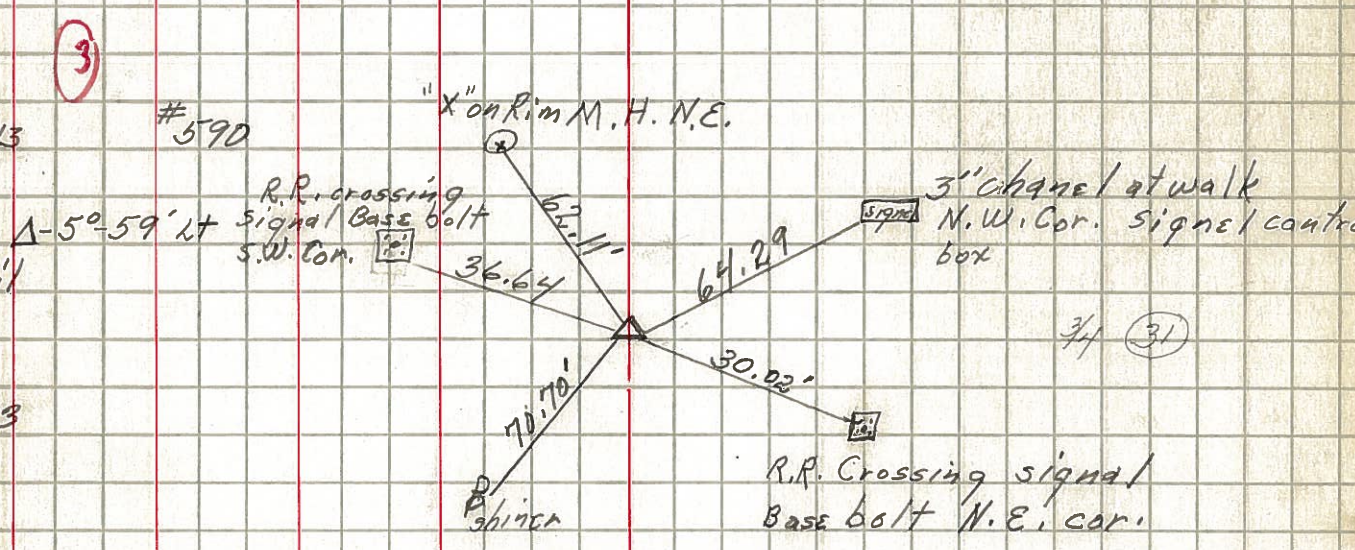 3
#590
13
"X" on Rim M.H. N.E.
R.R. crossing
signal Base bolt
S.W. Cor.
Δ-5°-59' Lt
62.11'
36.64
64.29
signal
3" chanel at walk
N.W. Cor. signel contro
box
3/4 31
30.02'
70.70'
3
PP
shiner
R.R. Crossing signal
Base bolt N.E. cor.